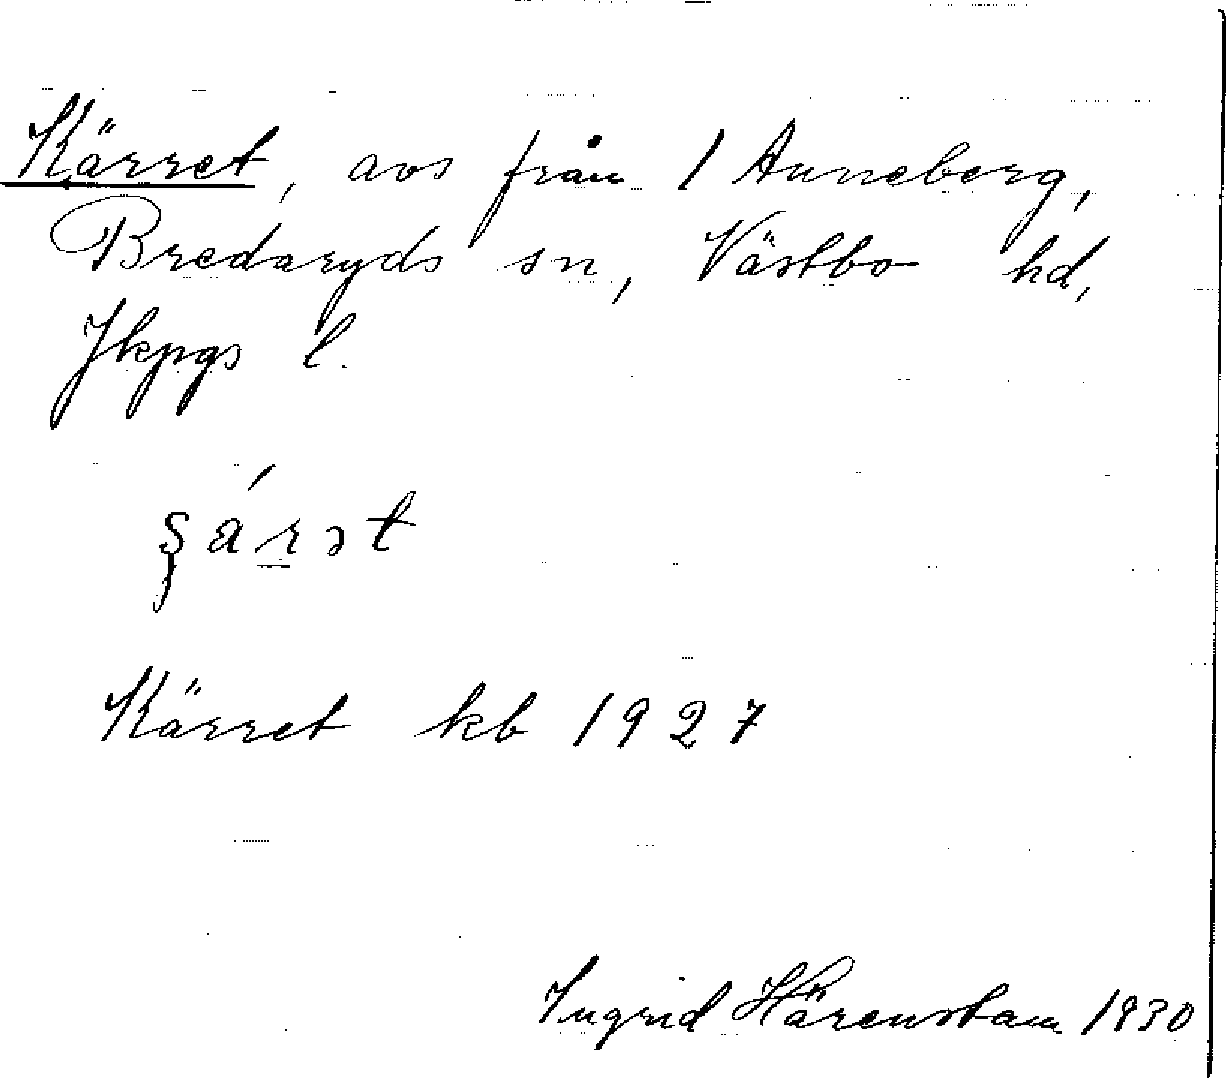 Kärret, avs från 1 Anneberg,
Bredaryds sn, Västbo hd,
Jkpgs l.
Kärret kb 1927
Ingrid Härenstam 1930